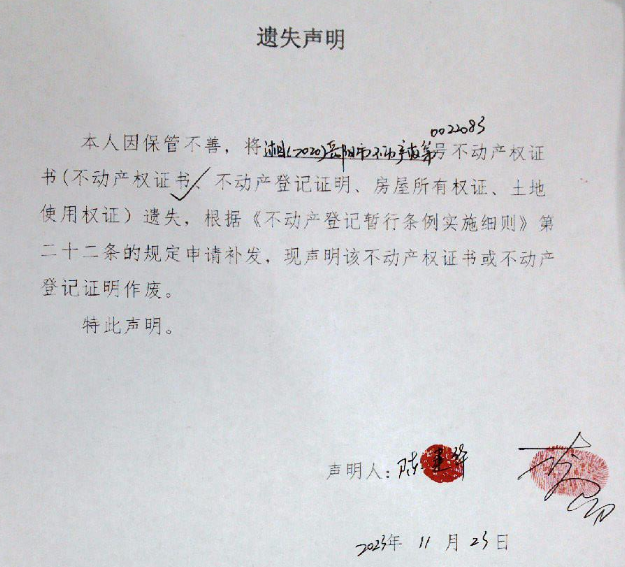 遗失声明
0022083
本人因保管不善，将湘(2020)岳阳市不动产权第号不动产权证
书(不动产权证书、不动产登记证明、房屋所有权证、土地
使用权证）遗失，根据《不动产登记暂行条例实施细则》第
二十二条的规定申请补发，现声明该不动产权证书或不动产
登记证明作废。
特此声明。
声明人：陈
2023年 11 月 23 日